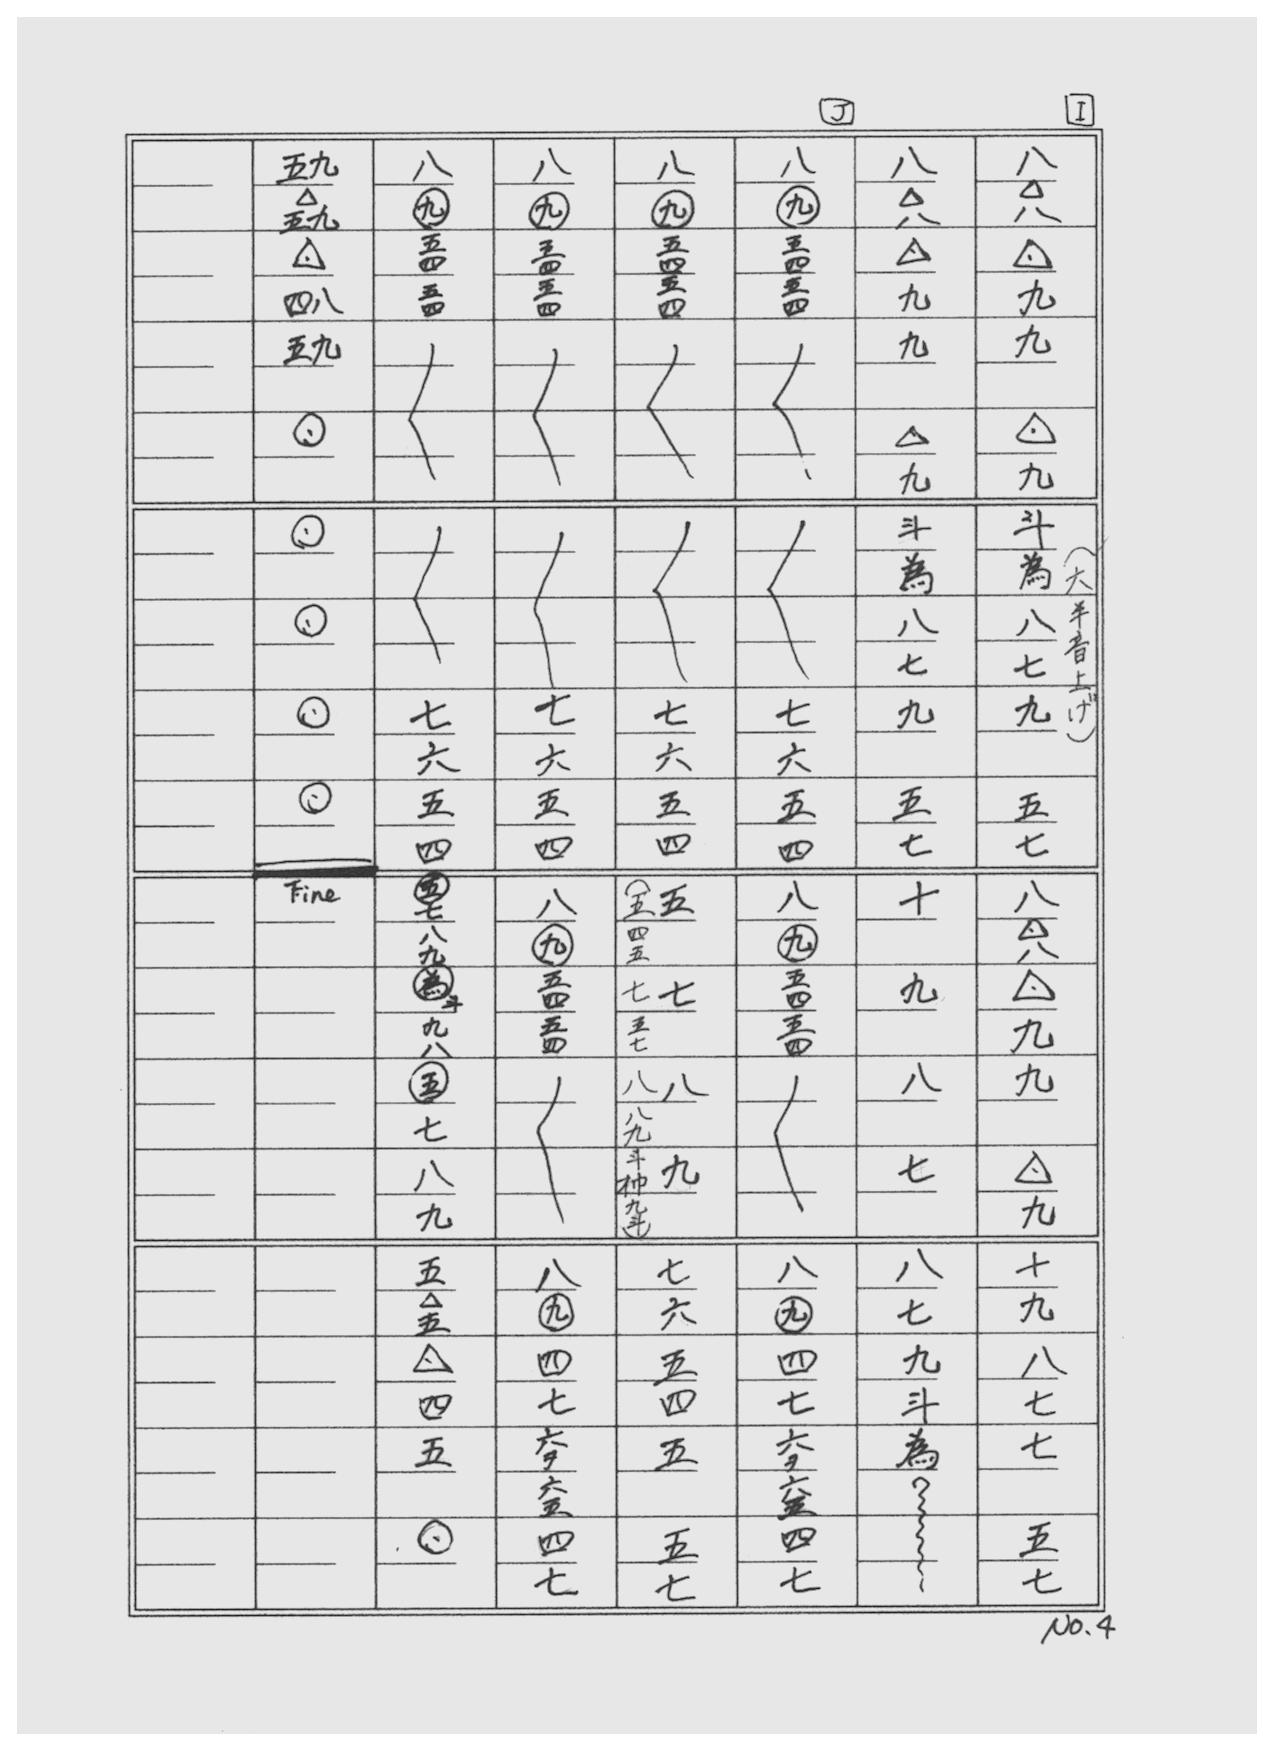 I
八△八△九九△九斗為八七九五七八△八△九九△九十九八七七五七
(大半音上げ)
八△八△九九△九斗為八七九五七十九八七八七九斗為
J
八九五四五四七六五四八九五四五四八九四七六夕六五四七
八九五四五四七六五四五七八九七六五四五五七
(五四五七五七八八九斗巾九斗)
八九五四五四七六五四八九五四五四八九四七六夕六五四七
八九五四五四七六五四五七八九為斗九八五七八九五△五△四五⊙
五九△五九△四八五九⊙⊙⊙⊙⊙
Fine
No.4